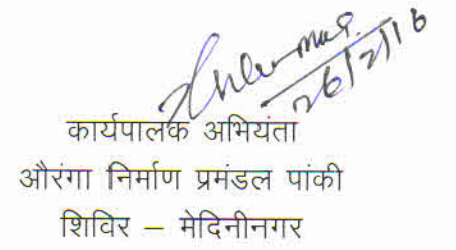 26/2/16
कार्यपालक अभियंता
औरंगा निर्माण प्रमंडल पांकी
शिविर – मेदिनीनगर